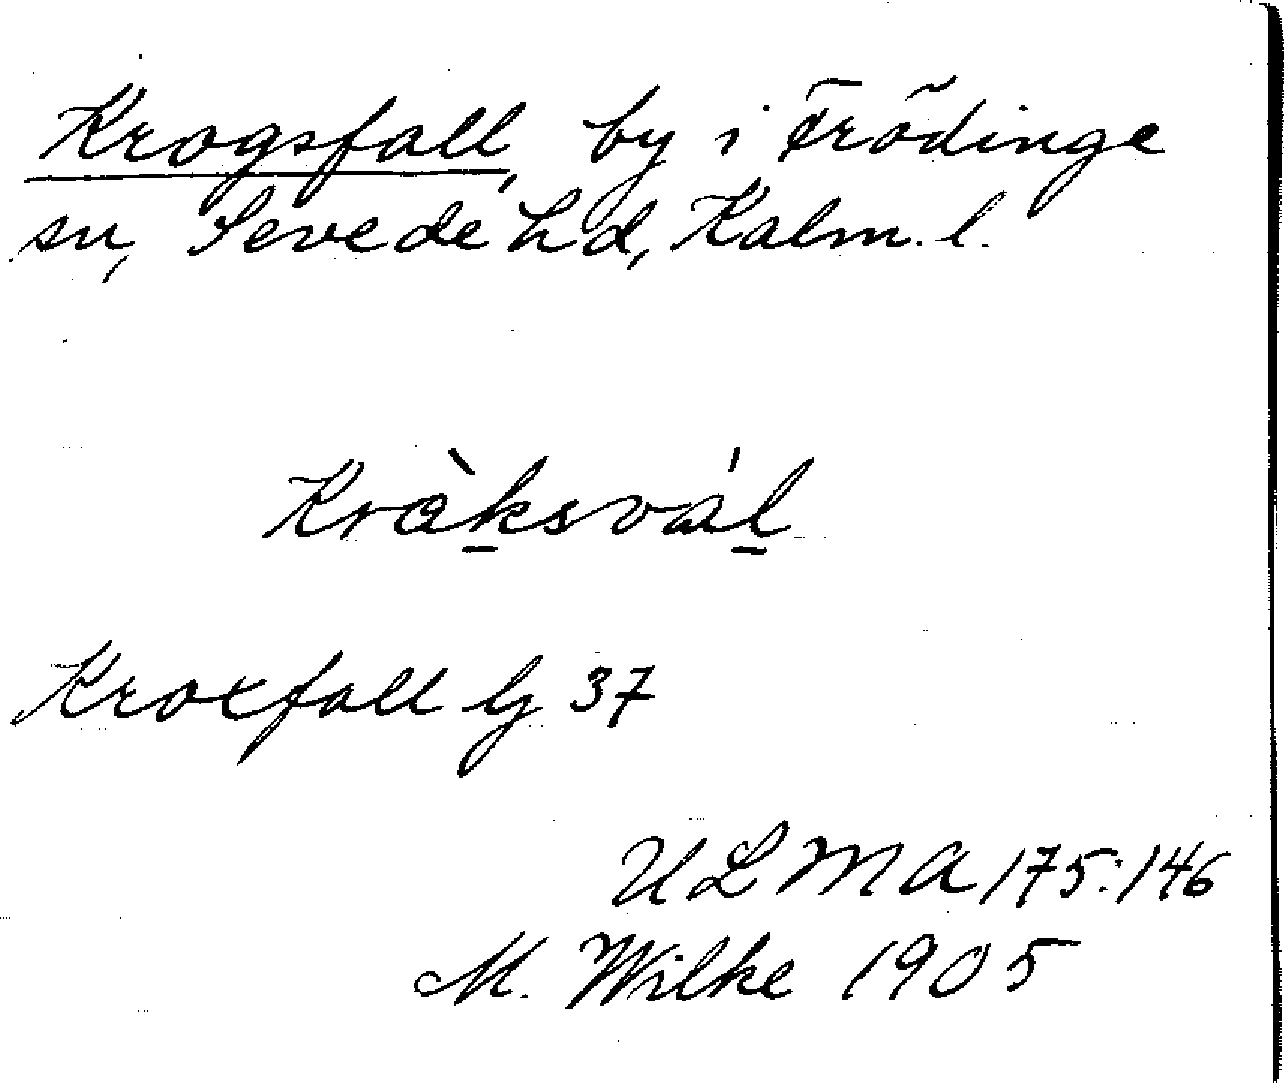 Krogsfall, by i Frödinge
sn, Sevede hd, Kalm. l.
Kràksvál
Kroxfall lg 37
ULMA 175:146
M. Wilke 1905